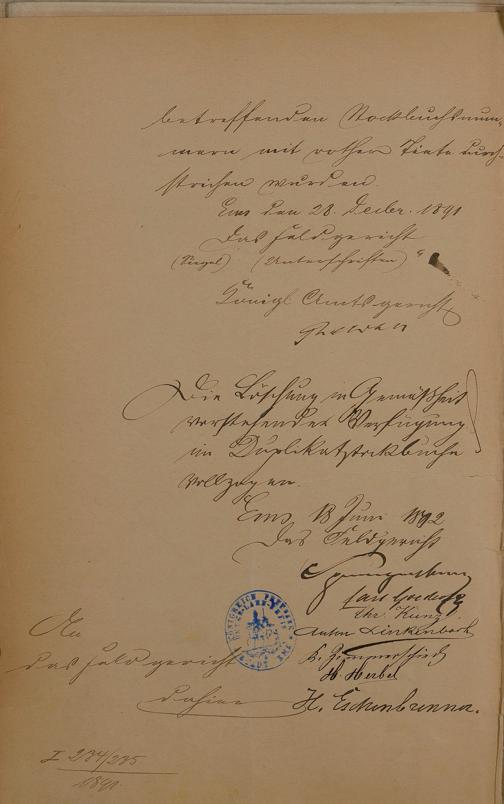 betreffenden Stockbuchsnum-
mern mit rother Tinte durch-
strichen wurden.
Ems den 28. Decbr. 1891
Das Feldgericht
(Siegel) (Unterschriften) "
Königl Amtsgericht
Die Löschung in Gemäßheit
vorstehender Verfügung
im Duplikatstockbuche
vollzogen.
Ems, 18 Juni 1892
Das Feldgericht
Carl
Chr. Kunz
Anton Linkenbach
H. Herbel
H. Eschenbrenner.
An
das Feldgericht
dahier
I 234/235
1891